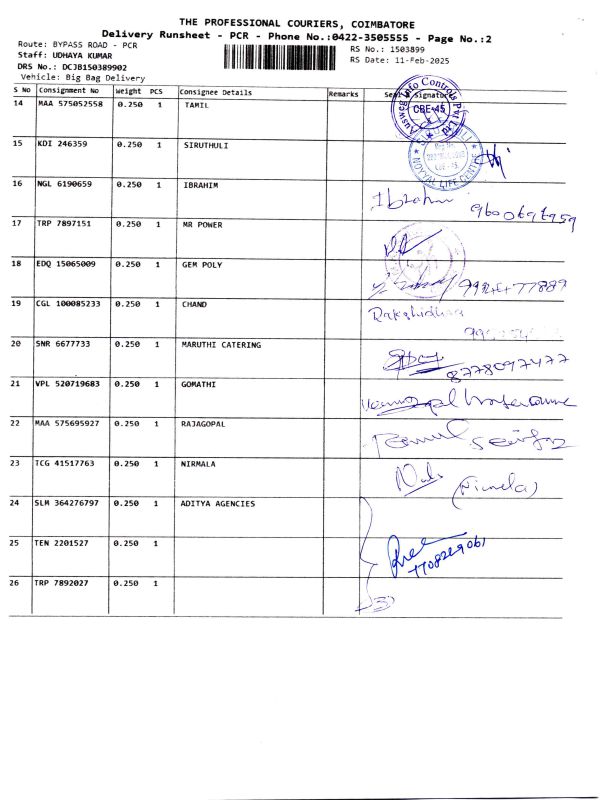 THE PROFESSIONAL COURIERS, COIMBATORE
Delivery Runsheet - PCR - Phone No.:0422-3505555 - Page No.:2
Route: BYPASS ROAD - PCR
RS No.: 1503899
Staff: UDHAYA KUMAR
RS Date: 11-Feb-2025
DRS No.: DCJB150389902
Vehicle: Big Bag Delivery
S No Consignment No Weight PCS Consignee Details Remarks Seal & Signature
14 MAA 575052558 0.250 1 TAMIL
CBE-45
15 KDI 246359 0.250 1 SIRUTHULI
NOYYAL LIFE CENTRE
16 NGL 6190659 0.250 1 IBRAHIM
Ibrahim
17 TRP 7897151 0.250 1 MR POWER
18 EDQ 15065009 0.250 1 GEM POLY
19 CGL 100085233 0.250 1 CHAND
20 SNR 6677733 0.250 1 MARUTHI CATERING
8778097477
21 VPL 520719683 0.250 1 GOMATHI
22 MAA 575695927 0.250 1 RAJAGOPAL
23 TCG 41517763 0.250 1 NIRMALA
(Nirmala)
24 SLM 364276797 0.250 1 ADITYA AGENCIES
25 TEN 2201527 0.250 1
7708269061
26 TRP 7892027 0.250 1
3